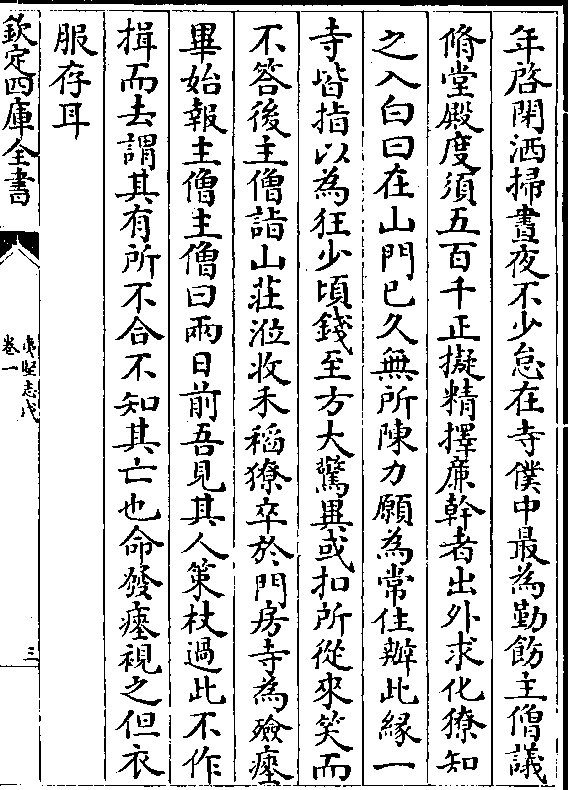 年啓閉洒掃晝夜不少怠在寺僕中最為勤飭主僧議
脩堂殿度須五百千正擬精擇廉幹者出外求化獠知
之入白曰在山門已久無所陳力願為常住辦此緣一
寺皆指以為狂少頃錢至方大驚異或扣所從來笑而
不答後主僧詣山莊涖收禾稻獠卒於門房寺為殮瘞
畢始報主僧主僧曰兩日前吾見其人策杖過此不作
揖而去謂其有所不合不知其亡也命發瘞視之但衣
服存耳
欽定四庫全書
夷堅志戊
卷一
三